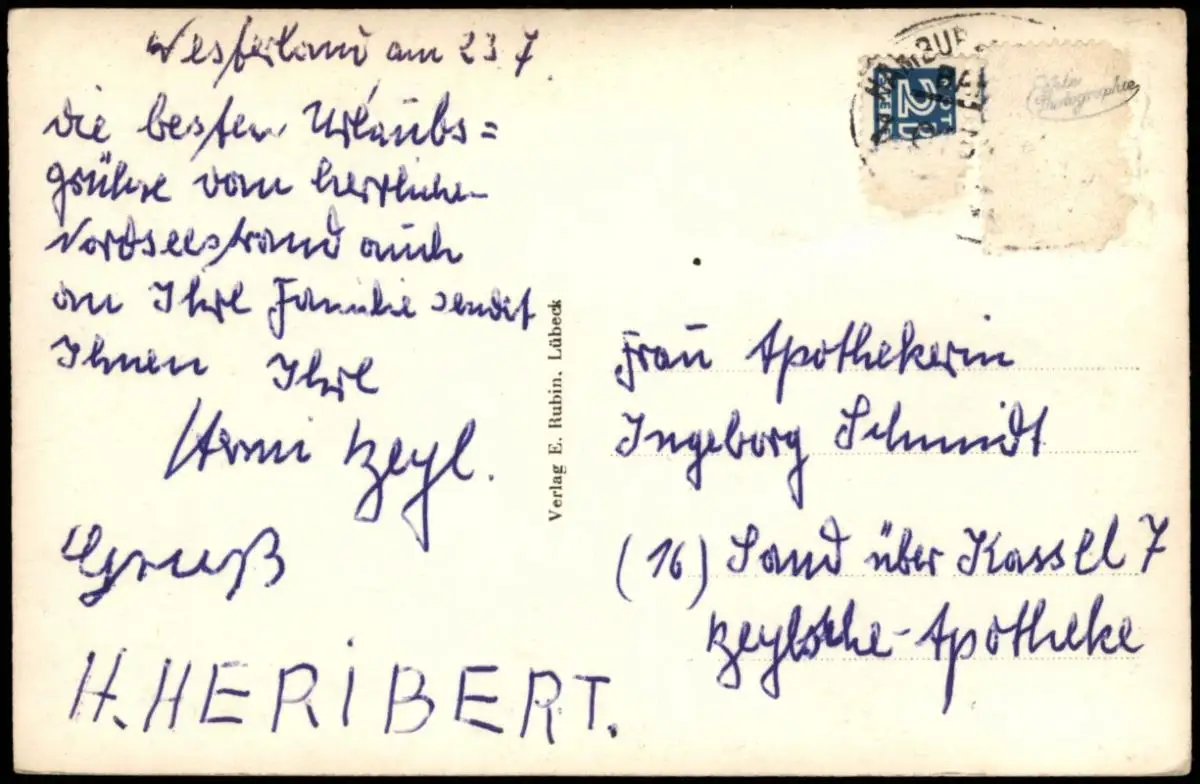 Westerland am 23.7
die besten Urlaubs=
grüße vom herrlichen
Nordseestrand auch
an Ihre Familie sendet
Ihnen Ihre
Henni Heyl.
Gruß
H. HERIBERT.
Verlag E. Rubin, Lübeck
HAMBUR
2
Echte
Photographie
Frau Apothekerin
Ingeborg Schmidt
(16) Sand über Kassel 7
Heylsche-Apotheke